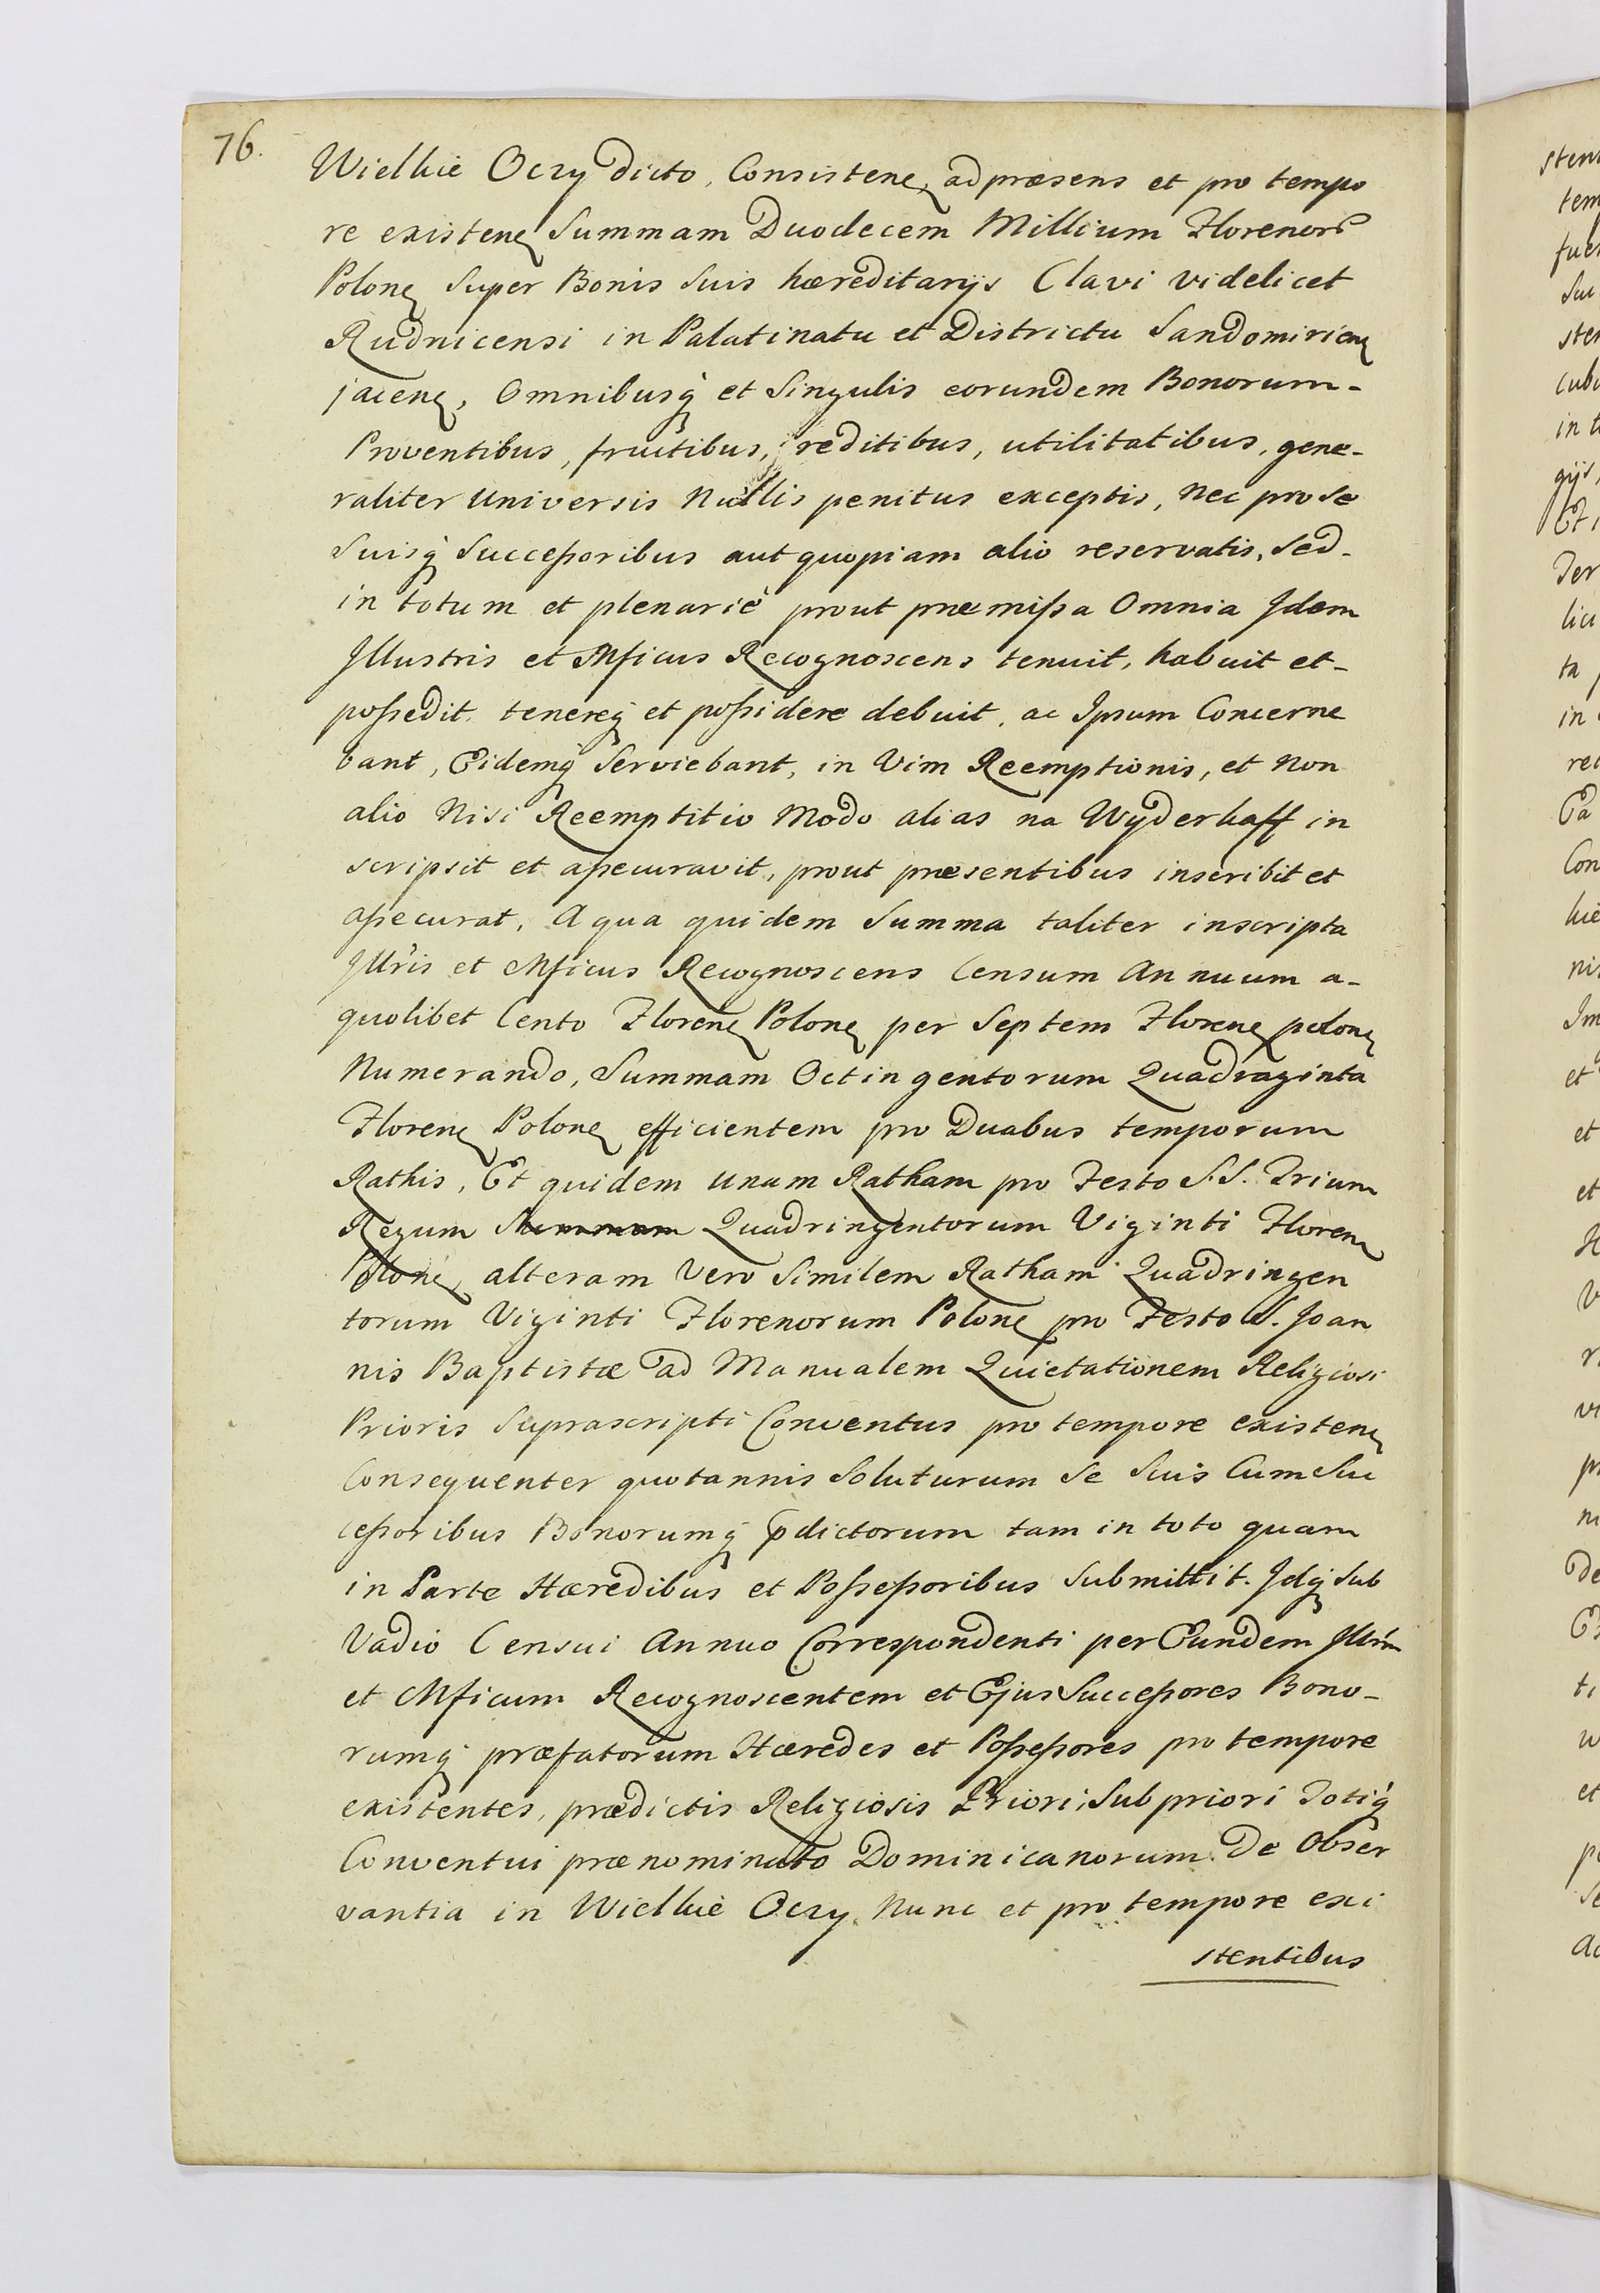 76.
Wielkie Oczy dicto, Consisteñ, ad præsens et pro tempo
re existeñ Summam Duodecem Millium Florenorũ
Poloñ Super Bonis suis hæreditarijs Clavi videlicet
Rudnicensi in Palatinatu et Districtu Sandomirieñ
jaceñ, Omnibusq̃ et Singulis eorundem Bonorum-
Proventibus, fructibus, reditibus, utilitatibus, gene-
raliter Universis Nullis penitus exceptis, Nec pro Se
Suisq̃ Successoribus aut quopiam alio reservatis, Sed-
in totum et plenariè prout præmissa Omnia Idem
Illustris et Mficus Recognoscens tenuit, habuit et-
possedit, tenereq̃ et possidere debuit, ac Ipsum Concerne
bant, Eidemq̃ Serviebant, in Vim Reemptionis, et Non
alio Nisi Reemptitio Modo alias na Wyderkaff in
scripsit et assecuravit, prout præsentibus inscribit et
assecurat, A qua quidem Summa taliter inscripta
Illris et Mficus Recognoscens Censum Annuum a-
quolibet Cento Floreñ Poloñ per Septem Floreñ poloñ
Numerando, Summam Octingentorum Quadraginta
Floreñ Poloñ efficientem pro Duabus temporum
Rathis, Et quidem unam Ratham pro Festo S.S. Trium
Regum Summam Quadringentorum Viginti Floreñ
Poloñ, alteram Vero Similem Ratham Quadringen
torum Viginti Florenorum Poloñ pro Festo S. Joan
nis Baptistæ ad Manualem Quietationem Religiosi
Prioris Suprascripti Conventus pro tempore existeñ
Consequenter quotannis Soluturum Se Suis Cum Suc
cessoribus Bonorumq̃ p̃dictorum tam in toto quam
in Parte Hæredibus et Possessoribus Submittit. Idq̃ Sub
Vadio Censui Annuo Correspondenti per Eundem Illrm
et Mficum Recognoscentem et Ejus Successores Bono-
rumq̃ præfatorum Hæredes et Possessores pro tempore
existentes, prædictis Religiosis Priori, Subpriori Totiq̃
Conventui prænominato Dominicanorum De Obser
vantia in Wielkie Oczy Nunc et pro tempore exi
stentibus